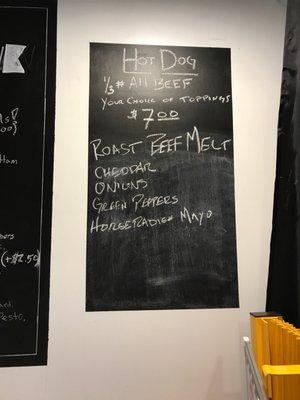 Hot Dog
1/3# All Beef
Your Choice of Toppings
$7.00
Roast Beef Melt
Cheddar
Onions
Green Peppers
Horseradish Mayo
Ham
(+$2.50)
Pesto.